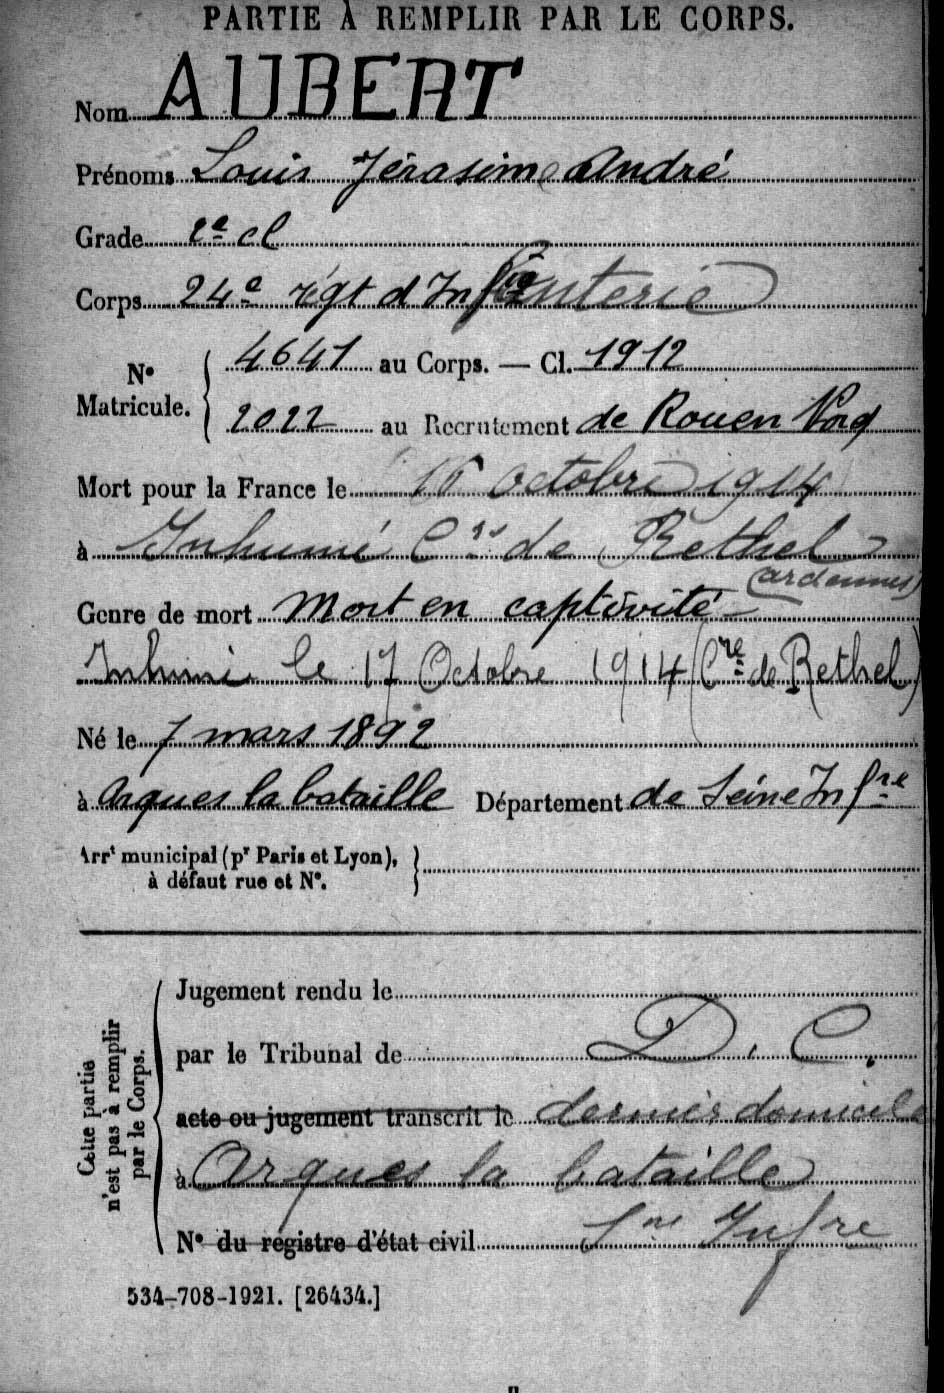 PARTIE À REMPLIR PAR LE CORPS.
Nom AUBERT
Prénoms Louis Jérasime André
Grade 2e cl
Corps 24e régt d'Infanterie
No Matricule. 4641 au Corps. — Cl. 1912
2022 au Recrutement de Rouen Nord
Mort pour la France le 16 octobre 1914
à Inhumé Cre de Rethel
(ardennes)
Genre de mort Mort en captivité
Inhumé le 17 Octobre 1914 (Cre de Rethel)
Né le 7 mars 1892
à Arques la bataille Département de Seine Infre
Arrt municipal (pr Paris et Lyon),
à défaut rue et No.
Cette partie n'est pas à remplir par le Corps.
Jugement rendu le
par le Tribunal de D. C.
acte ou jugement transcrit le dernier domicile
à Arques la bataille
No du registre d'état civil Sne Infre
534-708-1921. [26434.]